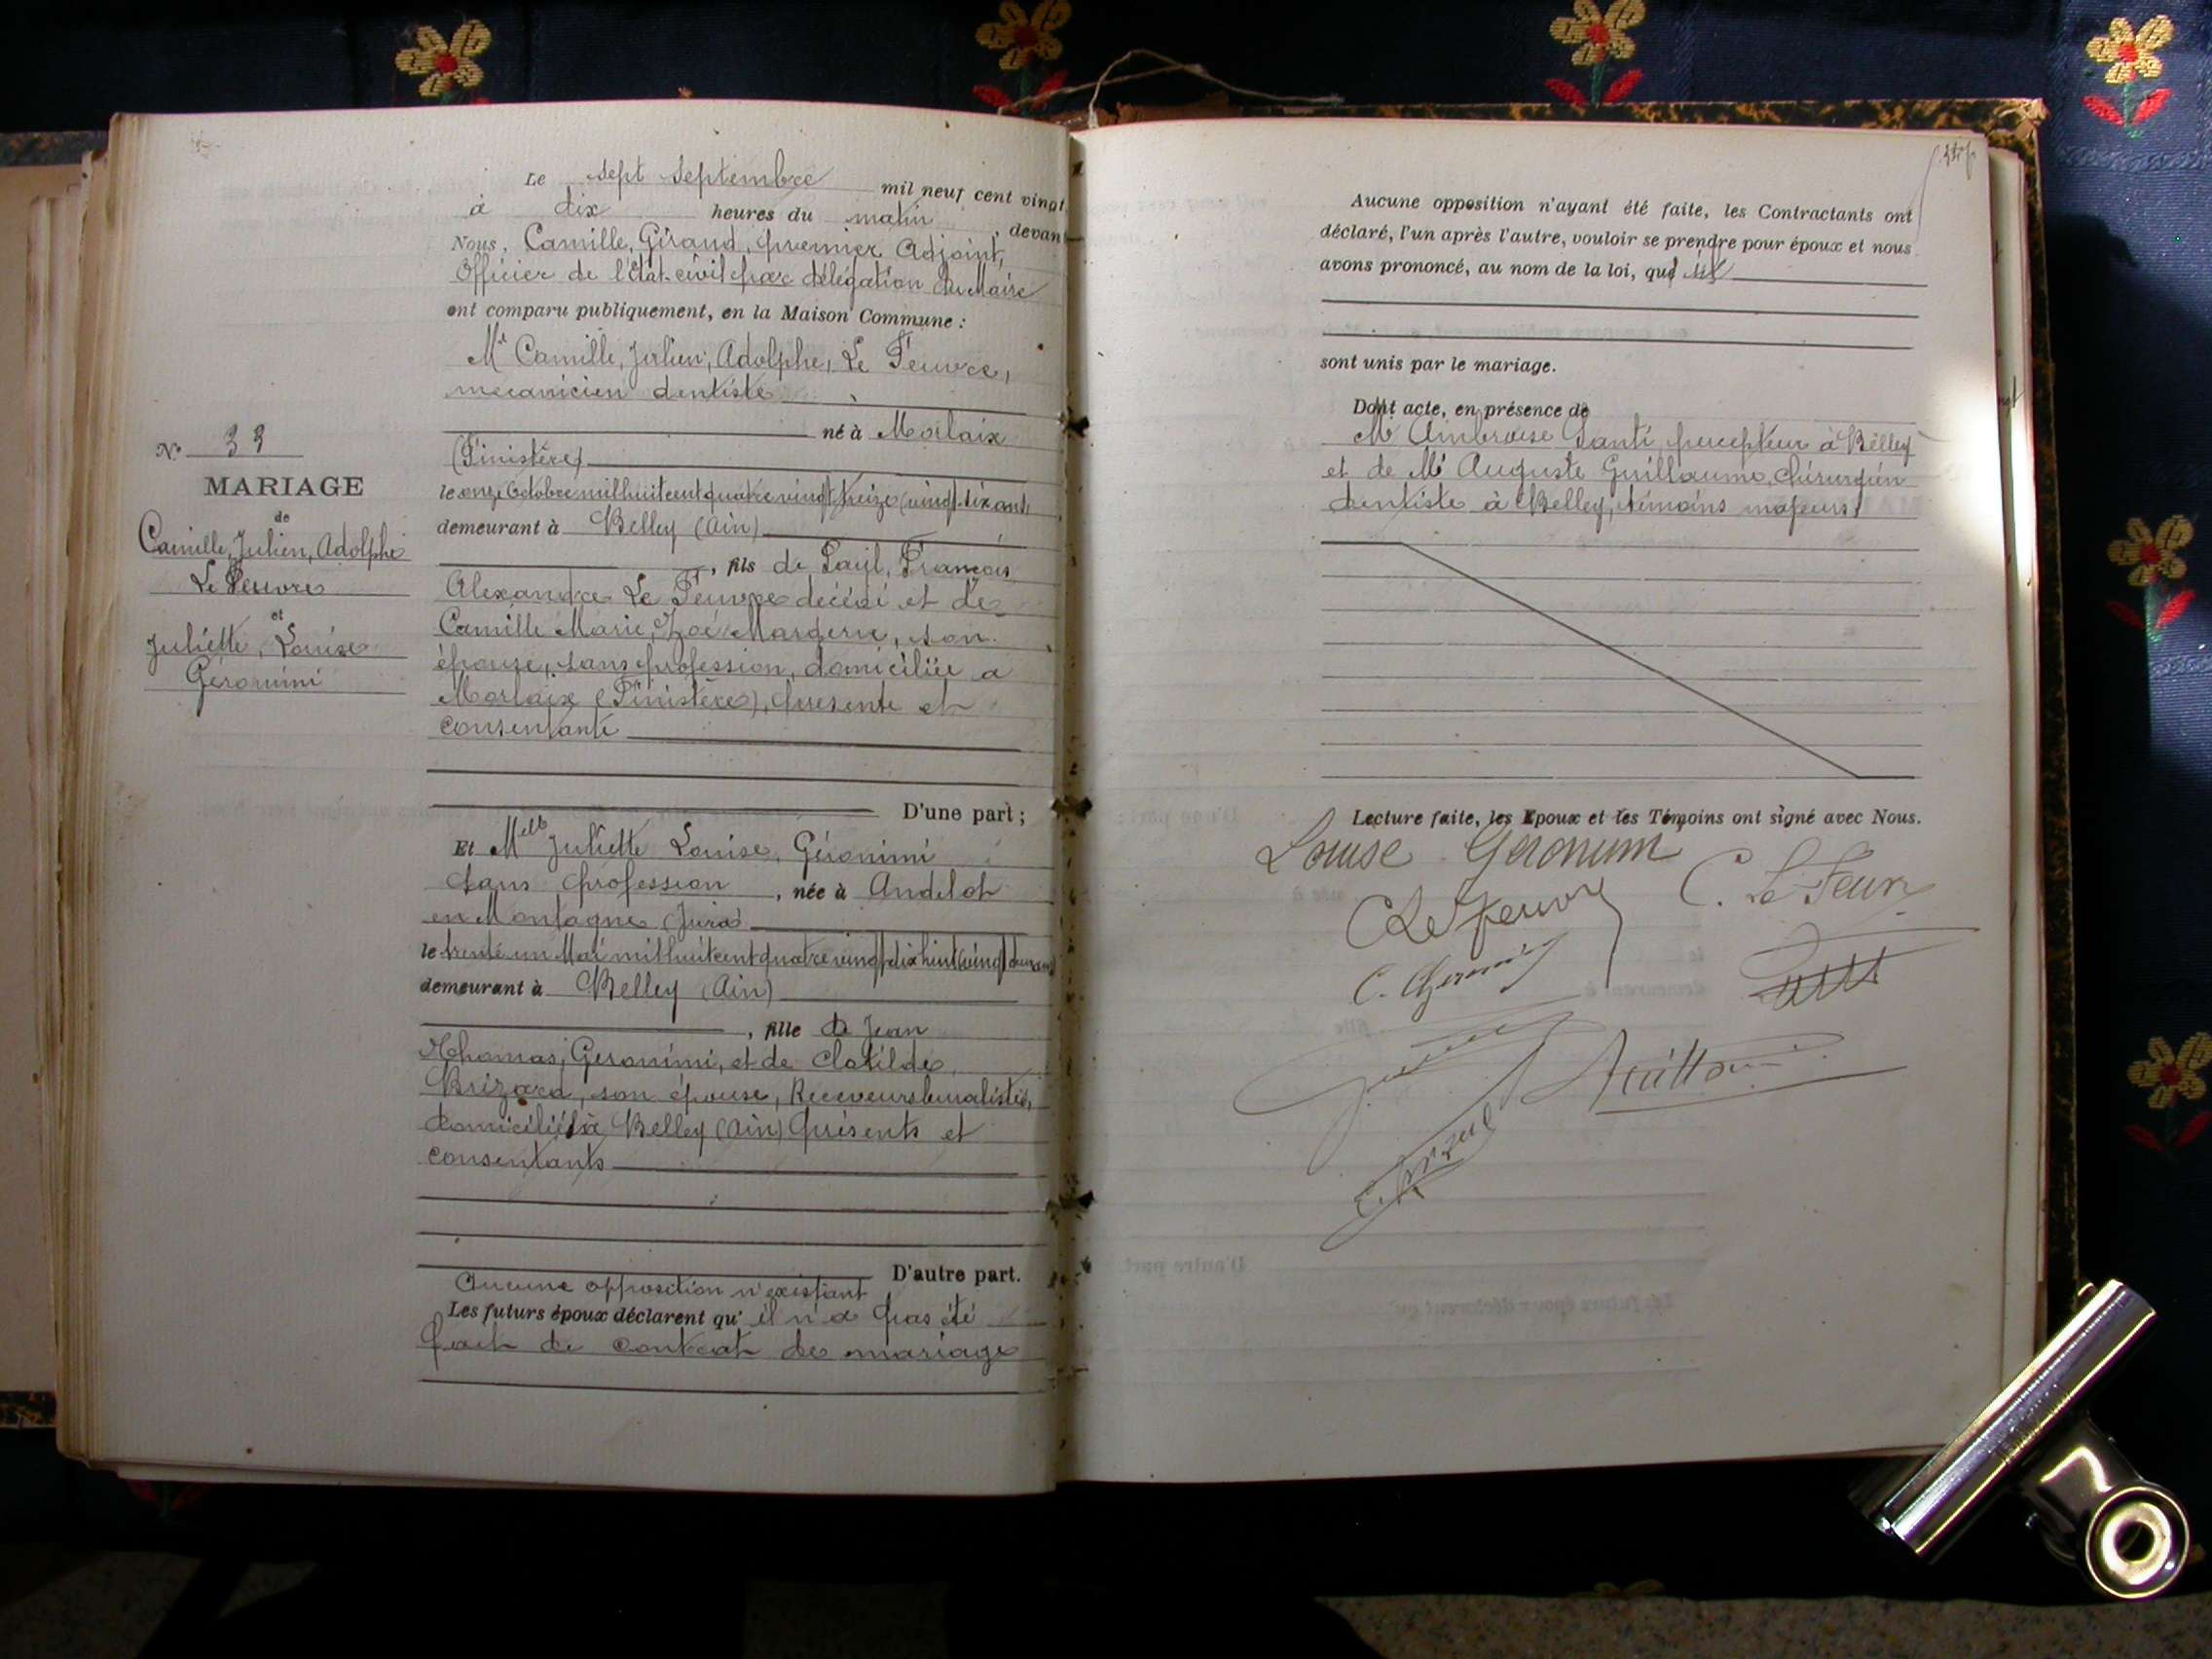 Le sept Septembre mil neuf cent vingt
à dix heures du matin, devant
Nous, Camille, Giraud, premier Adjoint,
Officier de l'état-civil par délégation du Maire
ont comparu publiquement, en la Maison Commune :
Mr Camille, Julien, Adolphe, Le Feuvre,
mecanicien dentiste
né à Morlaix
(Finistère)
le onze Octobre mil huit cent quatre vingt treize (vingt-six ans)
demeurant à Belley (Ain)
, fils de Paul, François
Alexandre Le Feuvre décédé et de
Camille Marie, Zoé, son
épouse, sans profession, domiciliée a
Morlaix (Finistère), présente et
consentante
D'une part ;
N° 33
MARIAGE
de
Camille, Julien, Adolphe
Le Feuvre
et
Juliette, Louise
Géronimi
Et Melle Juliette Louise, Géronimi
sans profession, née à Andelot
en Montagne (Jura)
le trente un Mai mil huit cent quatre vingt dix huit (vingt deux ans)
demeurant à Belley (Ain)
, fille de Jean
Thomas, Geronimi, et de Clotilde
Brizard, son épouse, Receveurs buralistes,
domiciliés à Belley (Ain) présents et
consentants
D'autre part.
Aucune opposition n'existant
Les futurs époux déclarent qu'il n'a pas été
fait de contrat de mariage
Aucune opposition n'ayant été faite, les Contractants ont
déclaré, l'un après l'autre, vouloir se prendre pour époux et nous
avons prononcé, au nom de la loi, qu'ils
sont unis par le mariage.
Dont acte, en présence de
Mr Ambroise Santi, percepteur à Belley
et de Mr Auguste Guillaume, chirurgien
dentiste à Belley, témoins majeurs
Lecture faite, les Epoux et les Témoins ont signé avec Nous.
Louise Geronimi
C Le Feuvre
C. Le Feuvre